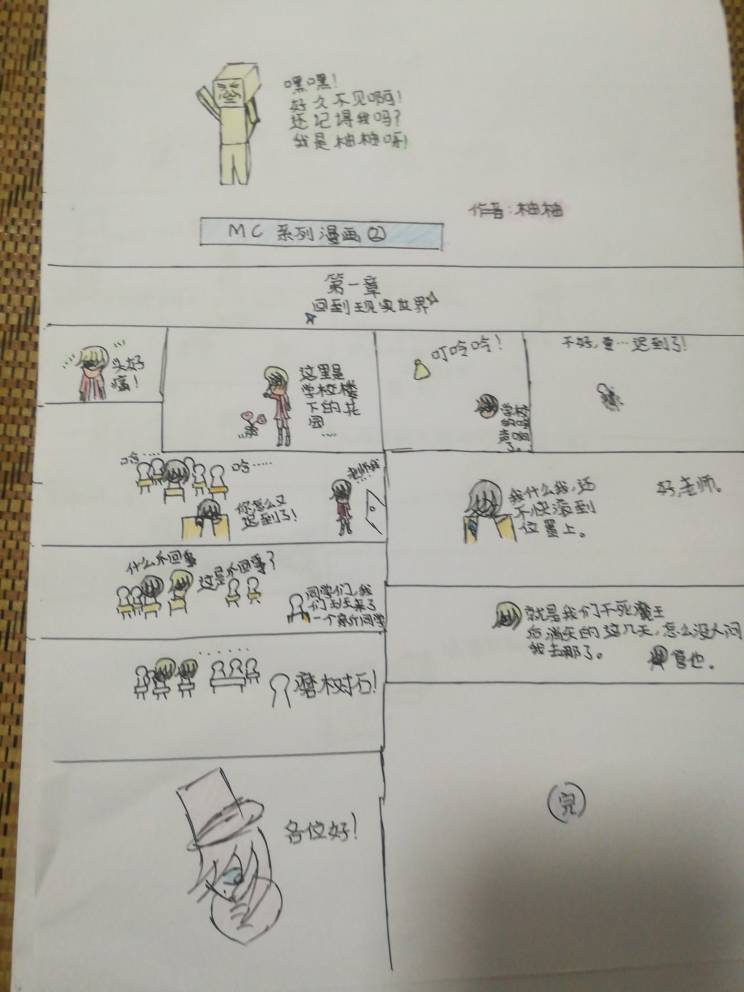 嘿嘿！
好久不见啊！
还记得我吗？
我是柚柚呀！
作者：柚柚
MC 系列漫画②
第一章
回到现实世界
头好
痛！
这里是
学校楼
下的花
园
....
叮呤呤！
学校
的
声响
了。
不好，要…迟到了！
哈....
哈.....
你怎么又
迟到了！
老师我
我什么我，还
不快滚到
位置上。
好，老师。
什么不回事
这是不回事？
同学们，我
们
一个新的同学
就是我们不死魔王
后消失的这几天，怎么没人问
我去那了。
管他。
......
磨树石！
各位好！
完